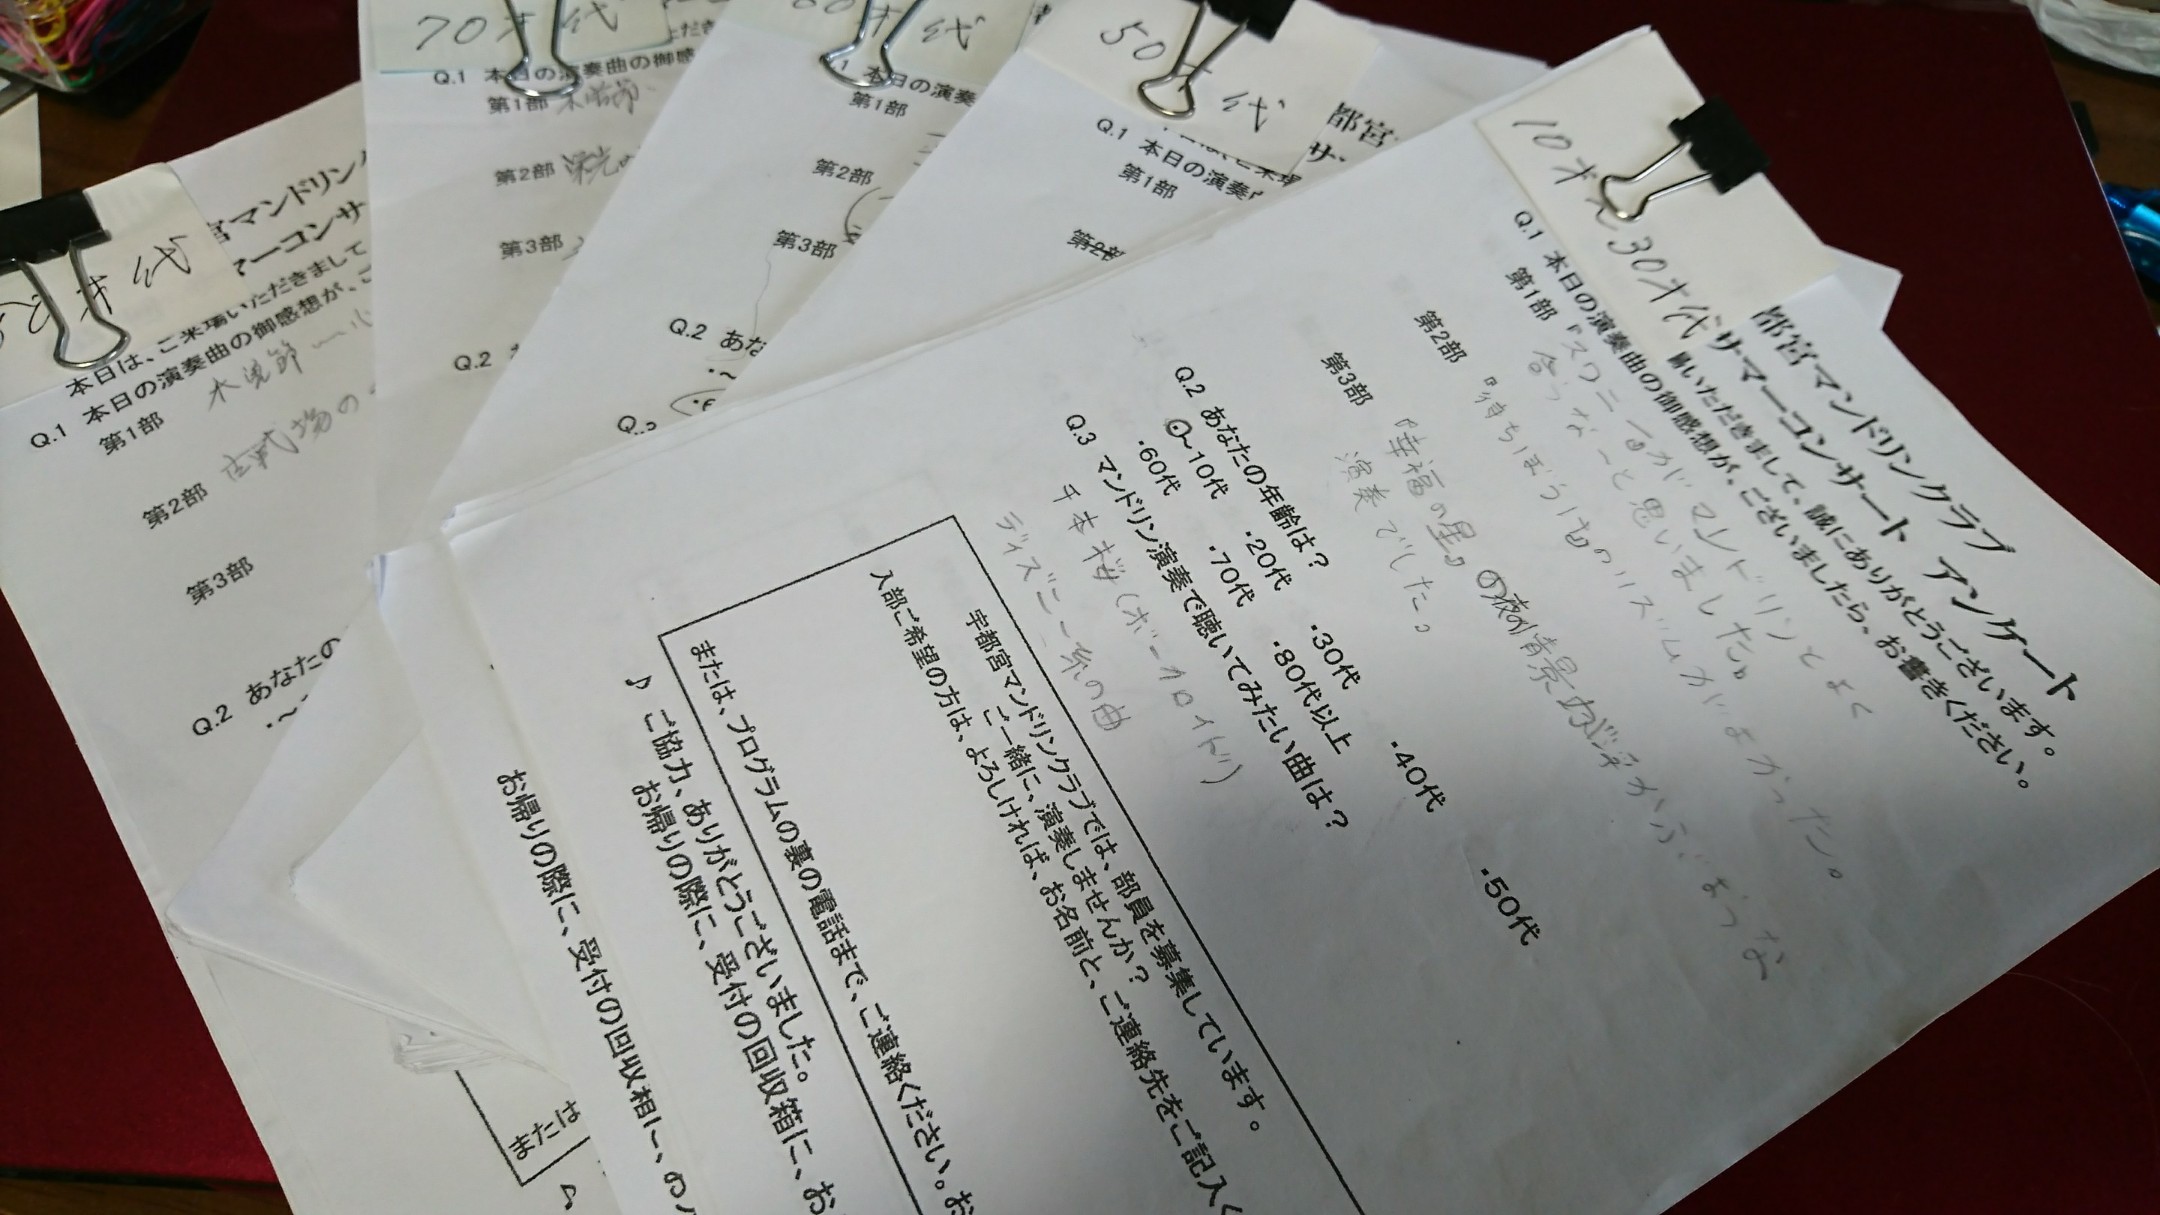 10才代 30才代
都宮マンドリンクラブ
サマーコンサート アンケート
場いただきまして、誠にありがとうございます。
Q.1 本日の演奏曲の御感想が、ございましたら、お書きください。
第1部 『スワニー』がマンドリンとよく
合うなーと思いました。
第2部 『待ちぼうけ』のリズムがよかった。
第3部 『幸福の星』の夜の情景が浮かぶような
演奏でした。
Q.2 あなたの年齢は?
・~10代 ・20代 ・30代 ・40代 ・50代
・60代 ・70代 ・80代以上
Q.3 マンドリン演奏で聴いてみたい曲は?
千本桜(ボーカロイド)
ディズニー系の曲
宇都宮マンドリンクラブでは、部員を募集しています。
ご一緒に、演奏しませんか?
入部ご希望の方は、よろしければ、お名前と、ご連絡先をご記入く
または、プログラムの裏の電話まで、ご連絡ください。お
♪ ご協力、ありがとうございました。
お帰りの際に、受付の回収箱に、お
お帰りの際に、受付の回収箱に、
50才代
都宮
サ
Q.1 本日の演奏
第1部
第2部
才代
本日の演奏
第1部
第2部
第3部
Q.2 あな
70才代
Q.1 本日の演奏曲の御感
第1部 木曽節
第2部 栄光の
第3部
Q.2
才代
宮マンドリンク
マーコンサ
本日は、ご来場いただきまして
Q.1 本日の演奏曲の御感想が、ご
第1部 木曽節
第2部 古戦場の
第3部
Q.2 あなたの
・~
または